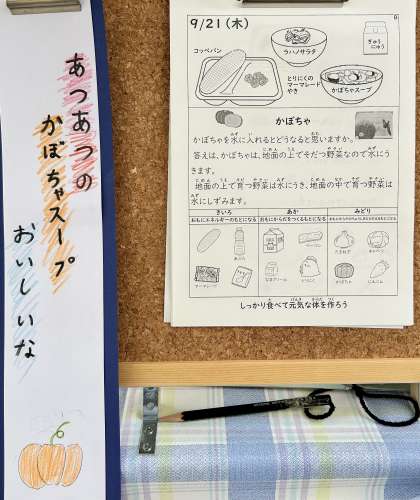 あつあつの
かぼちゃスープ
おいしいな
9/21(木)
コッペパン
ラハノサラタ
ぎゅうにゅう
とりにくの
マーマレード
やき
かぼちゃスープ
かぼちゃ
かぼちゃを水に入れるとどうなると思いますか。
答えは、かぼちゃは、地面の上でそだつ野菜なので水にう
きます。
地面の上で育つ野菜は水にうき、地面の中で育つ野菜は
水にしずみます。
きいろ
あか
みどり
おもにエネルギーのもとになる
おもにからだをつくるもとになる
マーマレード
なまクリーム
とりにく
たまねぎ
キャベツ
かぼちゃ
にんじん
しっかり食べて元気な体を作ろう